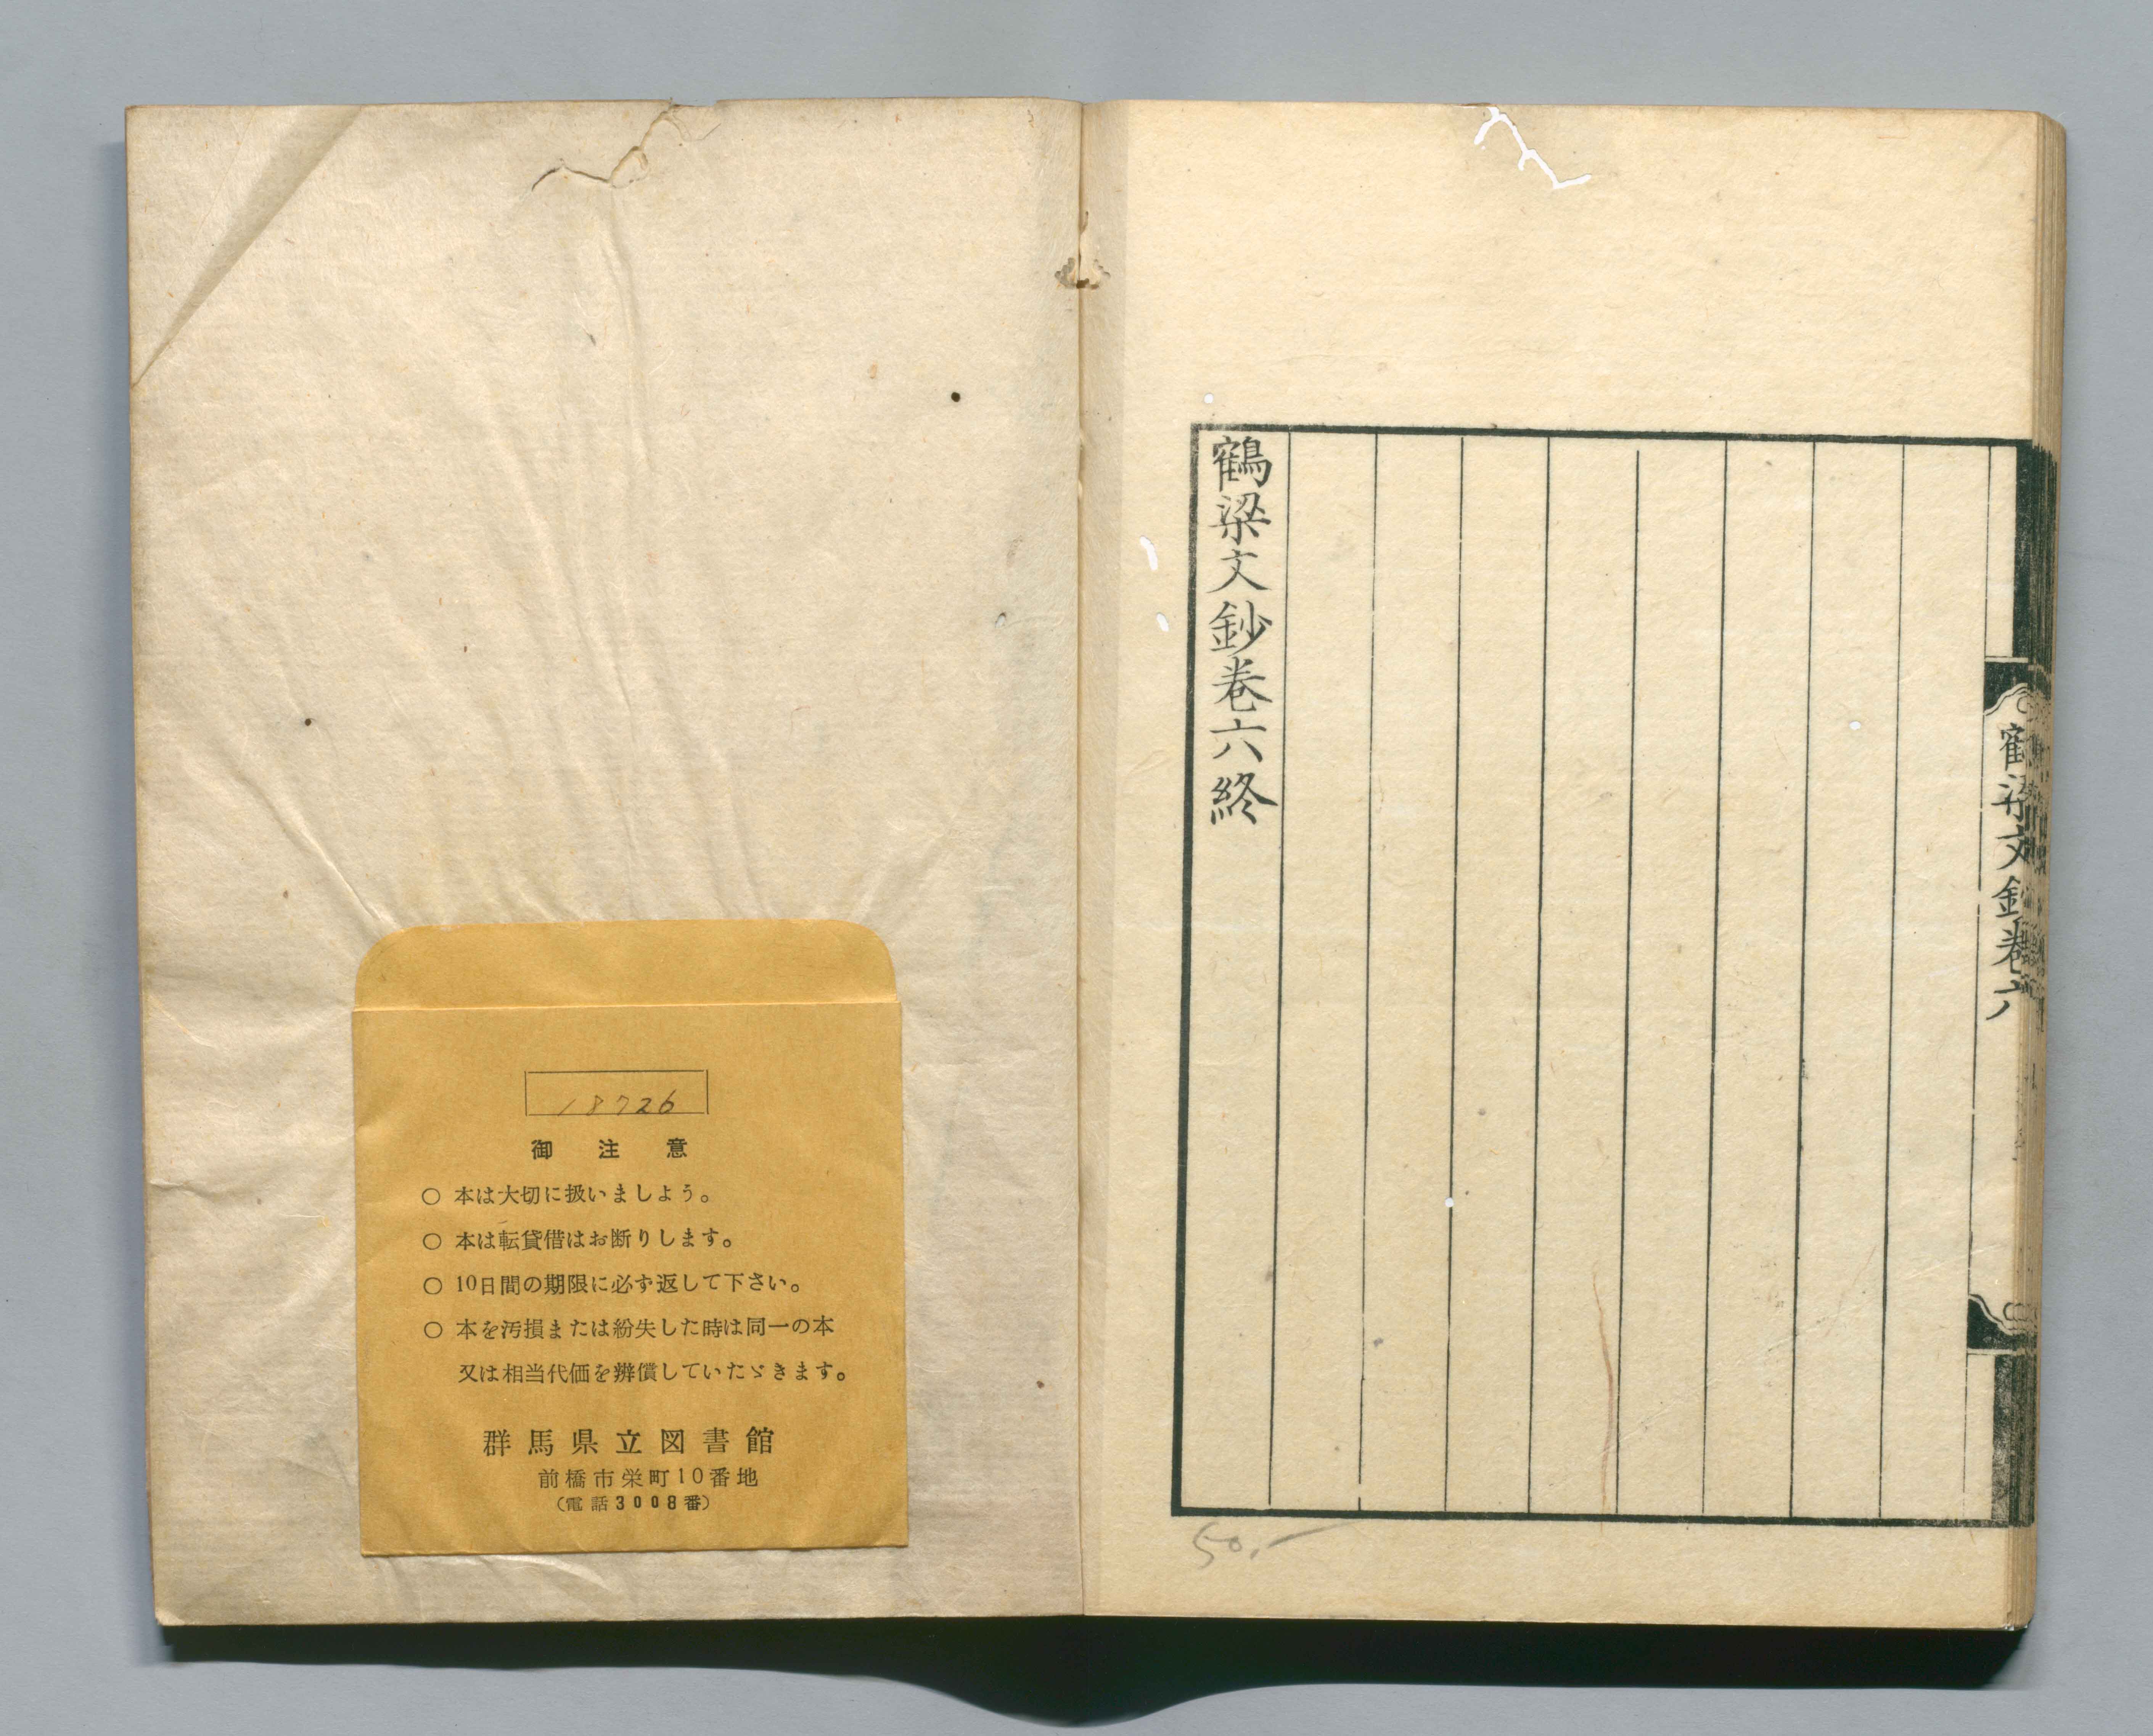 鶴梁文鈔卷六
鶴梁文鈔卷六終
50.-
18726
御注意
○ 本は大切に扱いましよう。
○ 本は転貸借はお断りします。
○ 10日間の期限に必ず返して下さい。
○ 本を汚損または紛失した時は同一の本
又は相当代価を辨償していたゞきます。
群馬県立図書館
前橋市栄町10番地
(電話3008番)